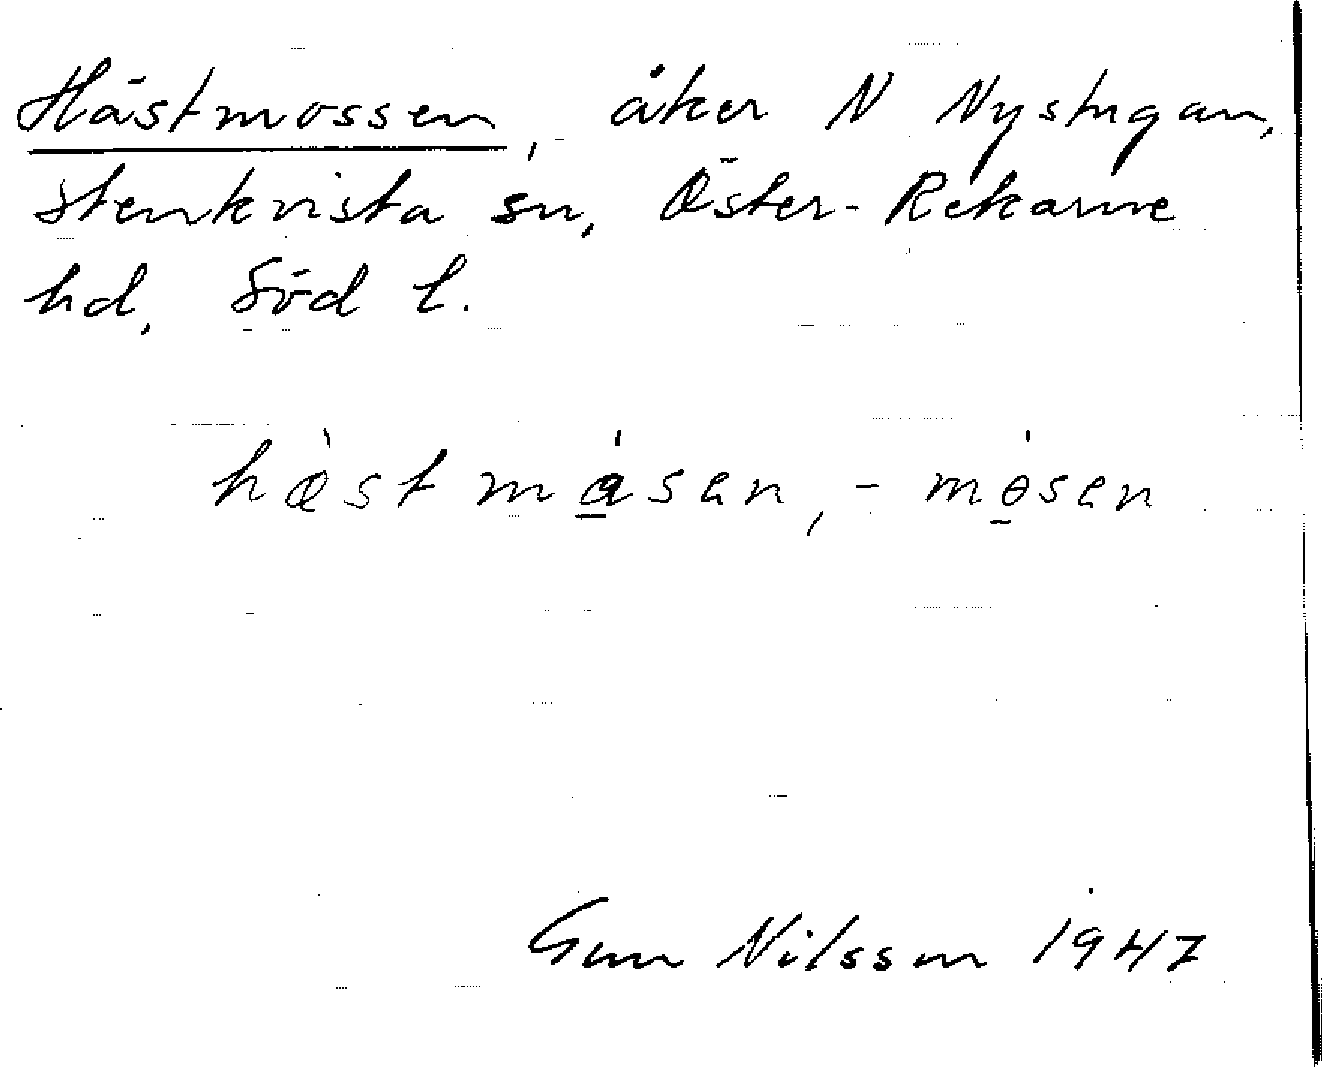 Hästmossen, åker N Nystugan,
Stenkvista sn, Öster-Rekarne
hd, Söd l.
hæ̀st må̀sen, - mɵ̀sen
Gun Nilsson 1947